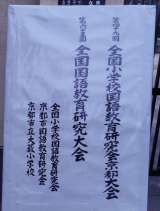 第四十九回
全国小学校国語教育研究会京都大会
第六十五回
全国国語教育研究大会
全国小学校国語教育研究会
京都市国語教育研究会
京都市立大藪小学校